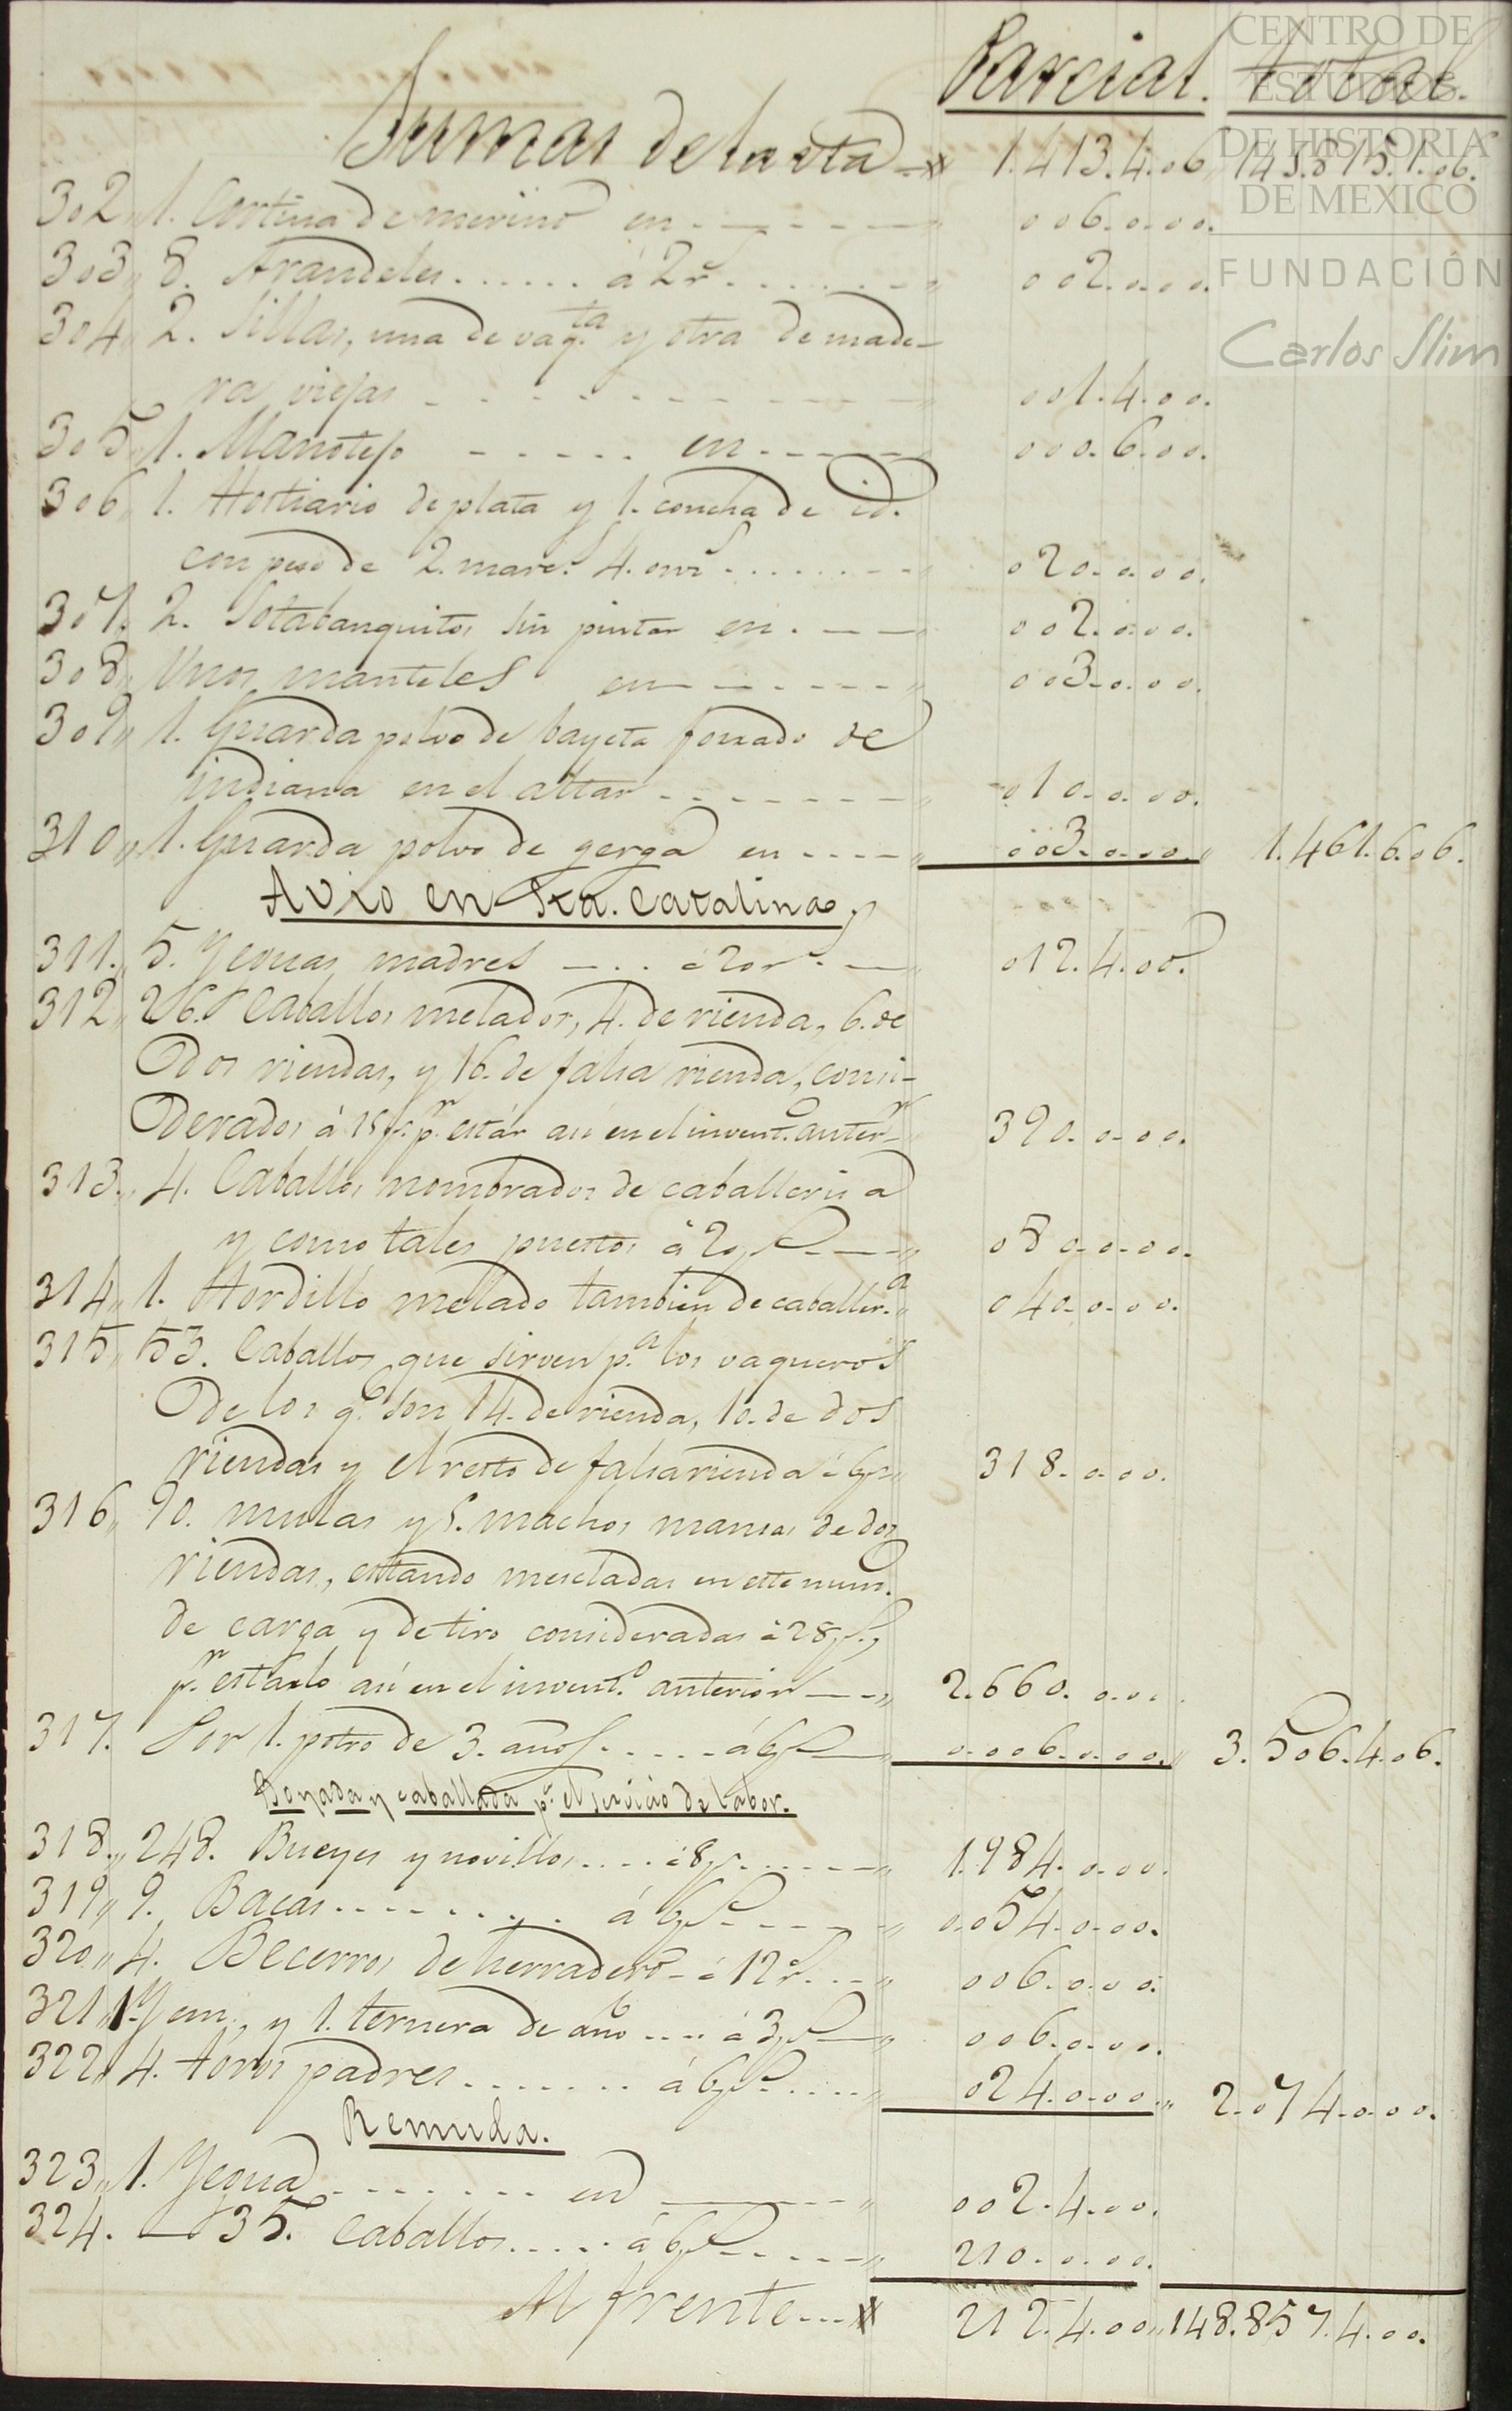 Parcial. Total.
Sumas de la vta 1.413.4.06. 143.815.1.06.
302 1. Cortina de merino en 006.0.00.
303 8. Arandelas à 2 r.s 002.0.00.
304 2. Sillas, una de vaq.ta y otra de made-
ra viejas 001.4.00.
305 1. Manotejo en 000.6.00.
306 1. Hostiario de plata y 1. concha de id.
con peso de 2. marc.s 4. onz.s 020.0.00.
307. 2. Sotabanquitos sin pintar en 002.0.00.
308 Unos manteles en 003.0.00.
309 1. Guarda polvo de bayeta forrado de
indiana en el altar 010.0.00.
310 1. Guarda polvo de gerga en 003.0.00. 1.461.6.06.
Avio en Sta. Catalina
311. 5. Yeguas madres à 20 r.s 012.4.00.
312 26. Caballos melados, 4. de rienda, 6. de
dos riendas, y 16. de falsa rienda, consi-
derados à 15 p.s p.r estár asi en el invent.o anter.r 390.0.00.
313. 4. Caballos nombrados de caballeriza
y como tales puestos à 20 p.s 080.0.00.
314 1. Tordillo melado tambien de caballer.a 040.0.00.
315 53. Caballos que sirven p.a los vaqueros
de los q.e son 14. de rienda, 10. de dos
riendas y el resto de falsa rienda à 6 p.s 318.0.00.
316 90. mulas y 5. machos mansos de dos
riendas, estando mescladas en este num.o
de carga y de tiro consideradas à 28 p.s,
p.r estarlo asi en el invent.o anterior 2.660.0.00.
317. Por 1. potro de 3. años à 6 p.s 0.006.0.00. 3.506.4.06.
Boyada y caballada p.a el servicio de labor.
318. 248. Bueyes y novillos à 8 p.s 1.984.0.00.
319 9. Bacas à 6 p.s 0.054.0.00.
320 4. Becerros de herradero à 12 r.s 006.0.00.
321 1. y 1. ternera de año à 3 p.s 006.0.00.
322 4. toros padres à 6 p.s 024.0.00. 2.074.0.00.
Remuda.
323 1. Yegua en 002.4.00.
324. 35. Caballos à 6 p.s 210.0.00.
Al frente 212.4.00. 148.857.4.00.
CENTRO DE
ESTUDIOS
DE HISTORIA
DE MEXICO
FUNDACIÓN
Carlos Slim